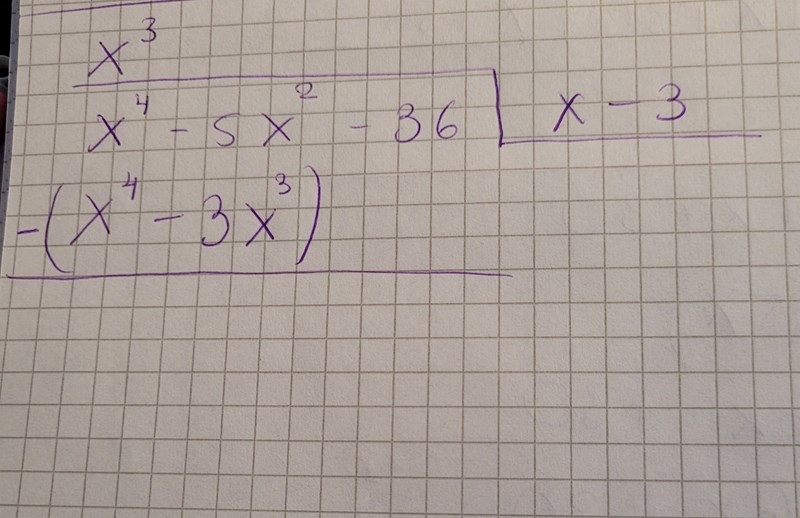 x³
x⁴ - 5x² - 36 x - 3
-(x⁴ - 3x³)